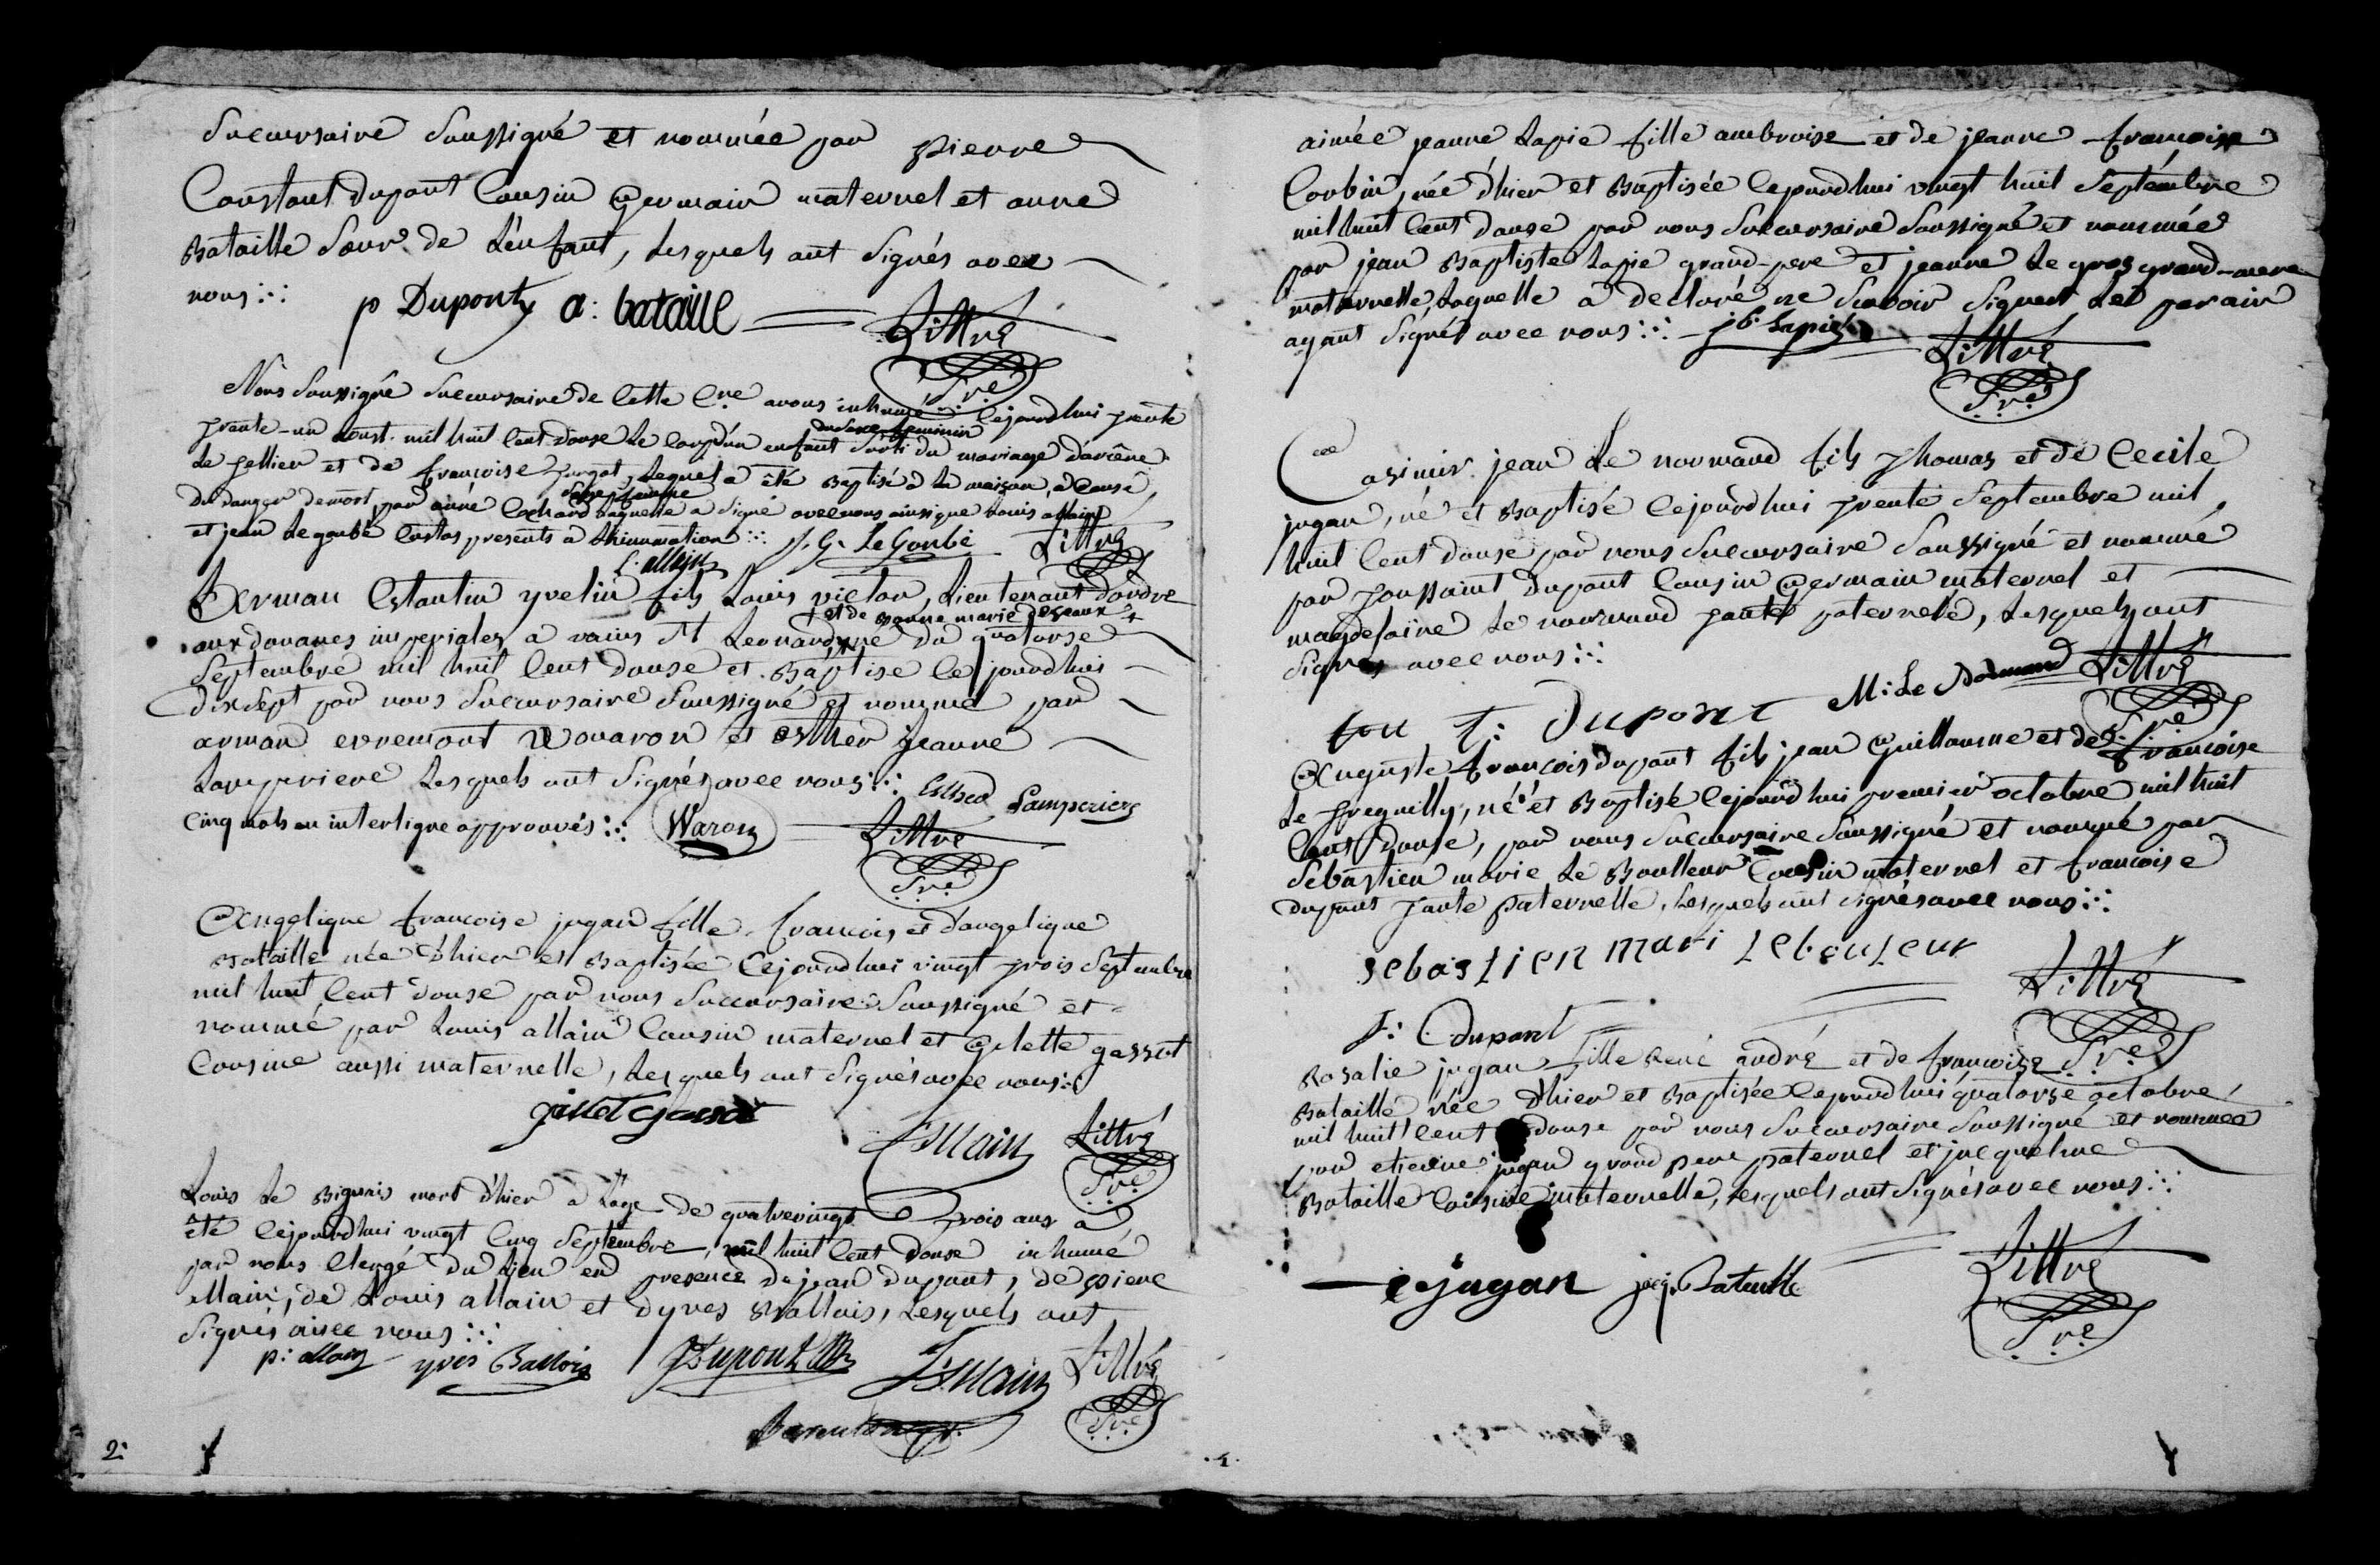 Sucursaire Soussigné et nommée par pierre
Constant dupont Cousin Germain maternel et anne
Bataille Sœur de L'enfant, Lesquels ont Signés avec
nous
p Dupont a: bataille Littré
Sre
Nous Soussigné Sucursaire de Cette Cne avons inhumé Cejourdhui trente
trente-un aoust mil huit Cent douse Le Corps d'un enfant Sorti du mariage
du Sexe feminin
Le tellier et de françoise turgot, Lequel a êté Baptisé à La maison, à Cause
du danger de mort, par aimé Cochard laquelle a Signé avec nous ainsi que Louis allain
Sage femme
et jean Le goubé Custos presents a Lhinumation J. G. Le Goubé Littré
L. allain
Arman Constantin yvelin fils Louis victor, Lieutenant d'ordre
+ et de Bonne marie deseaux +
aux douanes imperiales a vains St Leonard, né du quatorse
Septembre mil huit Cent douse et Baptisé Cejourdhui
dixsept par nous Sucursaire Soussigné et nommé par
arman evremont Wouaron et esther jeanne
Lamperiere Lesquels ont Signés avec nous Esther Lamperiere
Cinq mots en interligne approuvés Waron Littré
Sre
Angelique francoise jugan fille francois et d'angelique
Bataille née d'hier et Baptisée Cejourdhui vingt trois Septembre
mil huit Cent douse par nous Succursaire Soussigné et
nommé par Louis allain Cousin maternel et Gilette gassot
Cousine aussi maternelle, Lesquels ont Signés avec nous
gillet Gassot
L. allain Littré
Sre
Louis Le Biguais mort d'hier à L'age de quatrevingt trois ans a
êté Cejourdhui vingt Cinq Septembre, mil huit Cent douse inhumé
par nous Clergé du Lieu en presence de jean dupont, de piere
allain, de Louis allain et dyves Ballois, Lesquels ont
Signés avec nous
p: allain yves Ballois J Dupont L. allain Littré
Sre
2:
aimée jeanne Lapie fille ambroise et de jeanne francoise
Corbin, née d'hier et Baptisée Cejourdhui vingt huit Septembre
mil huit Cent douse par nous Sucursaire Soussigné et nommée
par jean Baptiste Lapie grand-pere et jeanne Le gros grand-mere
maternelle, Laquelle a declaré ne Scavoir Signer Le parain
ayant Signé avec nous jb Lapie Littré
Sre
Casimir jean Le normand fils thomas et de Cecile
jugan, né et Baptisé Cejourdhui trente Septembre mil
huit Cent douse par nous Sucursaire Soussigné et nommé
par toussaint dupont Cousin Germain maternel et
magdelaine Le normand tante paternele, Lesquels ont
Signés avec nous
T: Dupont M: Le Normand Littré
Sre
Auguste francois dupont fils jean Guillaume et de francoise
Le treguilly, né et Baptisé Cejourdhui premier octobre mil huit
Cent douse, par nous Sucursaire Soussigné et nommé par
Sebastien marie Le Bouleur Cousin maternel et francoise
dupont tante paternelle, Lesquels ont Signés avec nous
sebastien mari Lebouleur
Littré
f: Dupont Sre
Rosalie jugan fille René andré et de francoise
Bataille née d'hier et Baptisée Cejourdhui quatorse octobre
mil huit Cent douse par nous Sucursaire Soussigné et nommée
par etienne jugan grand pere paternel et jacqueline
Bataille Cousine maternelle, Lesquels ont Signés avec nous
e jugan jacq. Bataille Littré
Sre